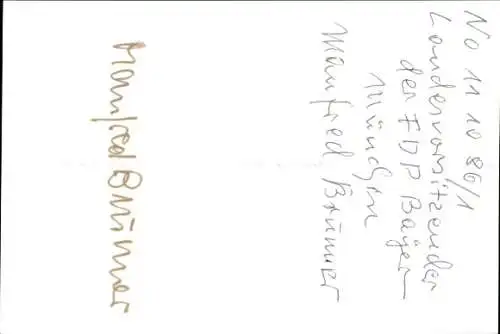 No 11 10 86/1
Landesvorsitzender
der FDP Bayern
München
Manfred Brunner
Manfred Brunner